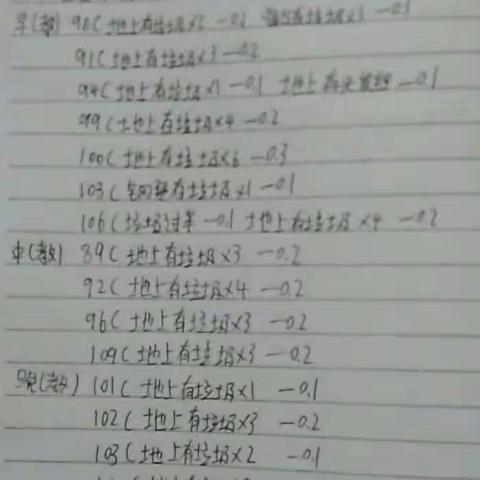 早(教) 90C 地上有垃圾×2 -0.1 有垃圾×1 -0.1
91C 地上有垃圾×3 -0.2
94C 地上有垃圾×1 -0.1 地上有 -0.1
99C 地上有垃圾×4 -0.2
100C 地上有垃圾×6 -0.3
103C 有垃圾×1 -0.1
106C 垃圾过半 -0.1 地上有垃圾×4 -0.2
中(教) 89C 地上有垃圾×3 -0.2
92C 地上有垃圾×4 -0.2
96C 地上有垃圾×3 -0.2
109C 地上有垃圾×3 -0.2
晚(教) 101C 地上有垃圾×1 -0.1
102C 地上有垃圾×3 -0.2
103C 地上有垃圾×2 -0.1